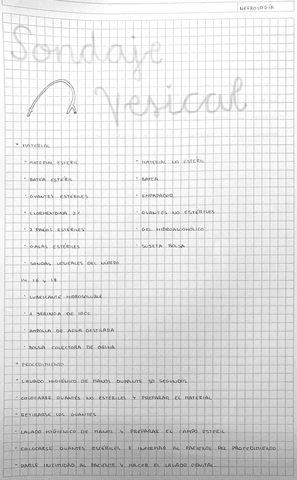 NEFROLOGÍA
Sondaje
Vesical
* MATERIAL
· MATERIAL ESTÉRIL
· MATERIAL NO ESTÉRIL
· BATEA ESTÉRIL
· BATEA
· GUANTES ESTÉRILES
· EMPAPADOR
· CLORHEXIDINA 2%
· GUANTES NO ESTÉRILES
· 2 PAÑOS ESTÉRILES
· GEL HIDROALCOHÓLICO
· GASAS ESTÉRILES
· SUJETA BOLSA
· SONDAS VESICALES DEL NÚMERO
14, 16 y 18
· LUBRICANTE HIDROSOLUBLE
· 1 JERINGA DE 10CC
· AMPOLLA DE AGUA DESTILADA
· BOLSA COLECTORA DE ORINA
* PROCEDIMIENTO
· LAVADO HIGIÉNICO DE MANOS DURANTE 30 SEGUNDOS
· COLOCARSE GUANTES NO ESTÉRILES Y PREPARAR EL MATERIAL
· RETIRARSE LOS GUANTES
· LAVADO HIGIÉNICO DE MANOS Y PREPARAR EL CAMPO ESTÉRIL
· COLOCARSE GUANTES ESTÉRILES E INFORMAR AL PACIENTE DEL PROCEDIMIENTO
· DARLE INTIMIDAD AL PACIENTE Y HACER EL LAVADO GENITAL